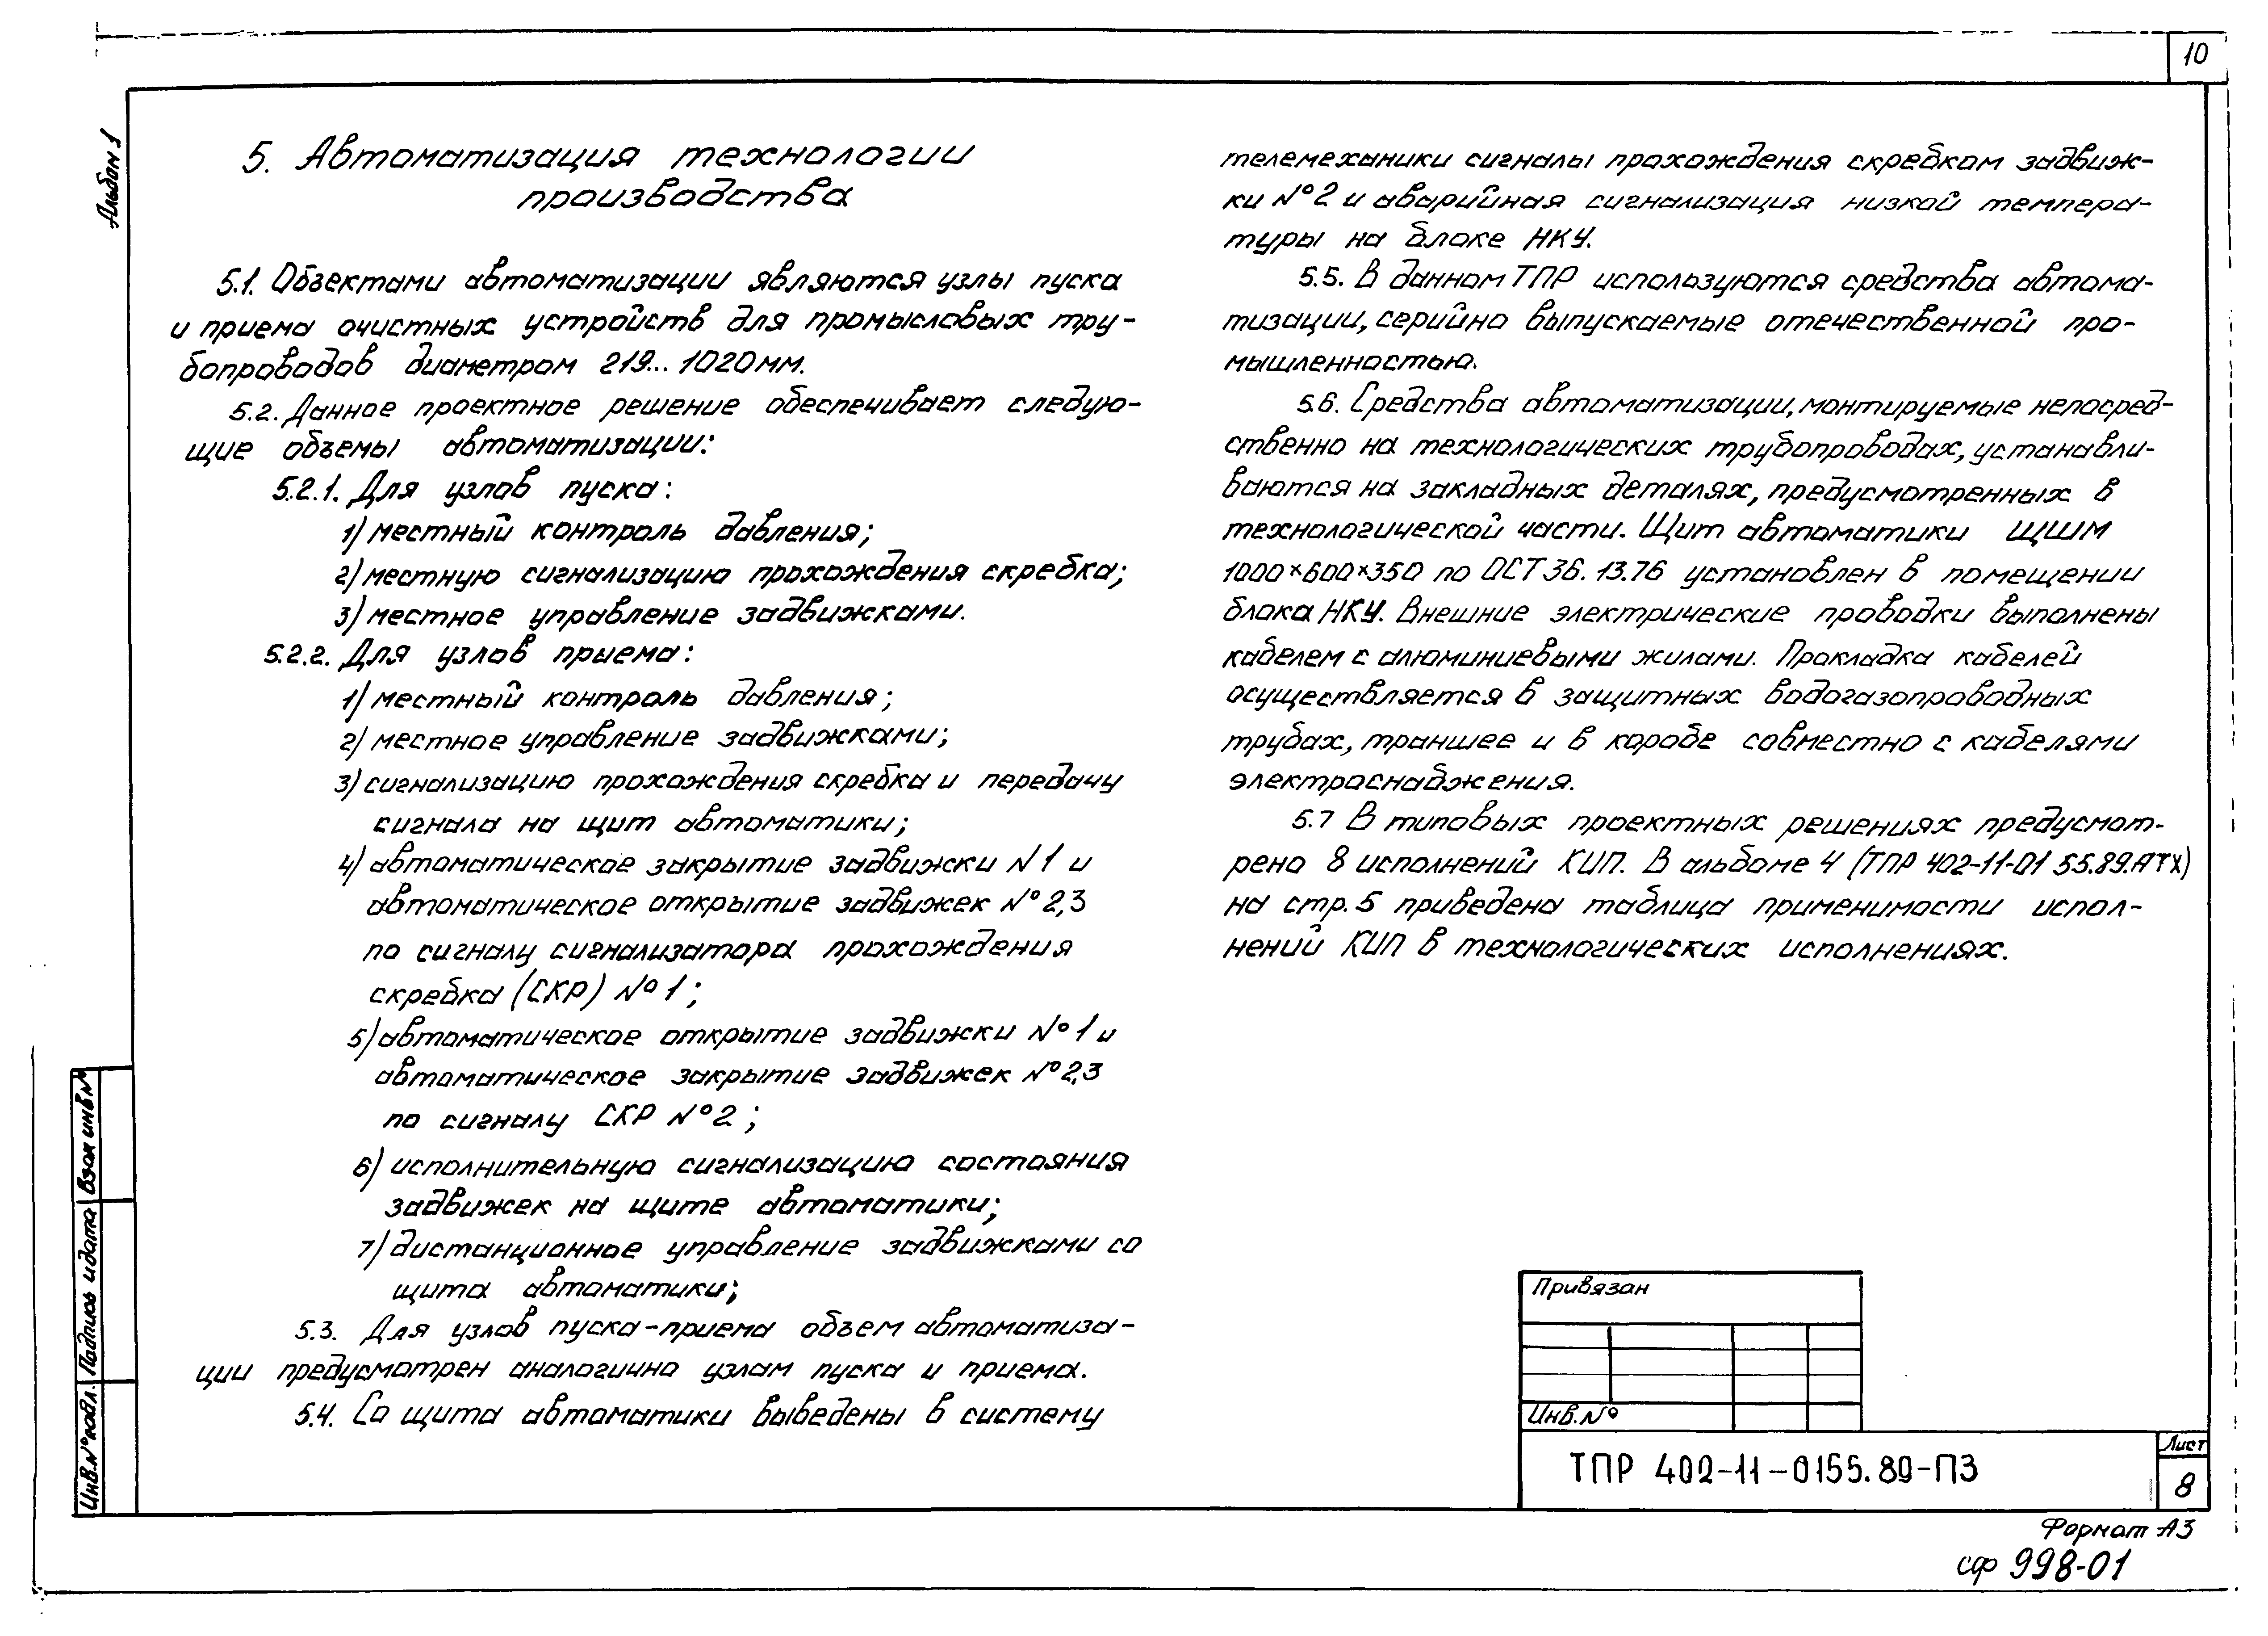 10
Альбом 1
5. Автоматизация технологии
производства
5.1. Объектами автоматизации являются узлы пуска
и приема очистных устройств для промысловых тру-
бопроводов диаметром 219... 1020мм.
5.2. Данное проектное решение обеспечивает следую-
щие объемы автоматизации:
5.2.1. Для узлов пуска:
1) местный контроль давления;
2) местную сигнализацию прохождения скребка;
3) местное управление задвижками.
5.2.2. Для узлов приема:
1) местный контроль давления;
2) местное управление задвижками;
3) сигнализацию прохождения скребка и передачу
сигнала на щит автоматики;
4) автоматическое закрытие задвижки N 1 и
автоматическое открытие задвижек N° 2,3
по сигналу сигнализатора прохождения
скребка (СКР) N° 1;
5) автоматическое открытие задвижки N° 1 и
автоматическое закрытие задвижек N° 2,3
по сигналу СКР N° 2;
6) исполнительную сигнализацию состояния
задвижек на щите автоматики;
7) дистанционное управление задвижками со
щита автоматики;
5.3. Для узлов пуска-приема объем автоматиза-
ции предусмотрен аналогично узлам пуска и приема.
5.4. Со щита автоматики выведены в систему
телемеханики сигналы прохождения скребком задвиж-
ки N° 2 и аварийная сигнализация низкой темпера-
туры на блоке НКУ.
5.5. В данном ТПР используются средства автома-
тизации, серийно выпускаемые отечественной про-
мышленностью.
5.6. Средства автоматизации, монтируемые непосред-
ственно на технологических трубопроводах, устанавли-
ваются на закладных деталях, предусмотренных в
технологической части. Щит автоматики ЩШМ
1000×600×350 по ОСТ 36.13.76 установлен в помещении
блока НКУ. Внешние электрические проводки выполнены
кабелем с алюминиевыми жилами. Прокладка кабелей
осуществляется в защитных водогазопроводных
трубах, траншее и в коробе совместно с кабелями
электроснабжения.
5.7 В типовых проектных решениях предусмот-
рено 8 исполнений КИП. В альбоме 4 (ТПР 402-11-0155.89.АТХ)
на стр. 5 приведена таблица применимости испол-
нений КИП в технологических исполнениях.
Взам инв N
Подпись и дата
Инв. N° подл.
Привязан
Инв. N°
ТПР 402-11-0155.89-ПЗ
Лист
8
Формат А3
сф 998-01